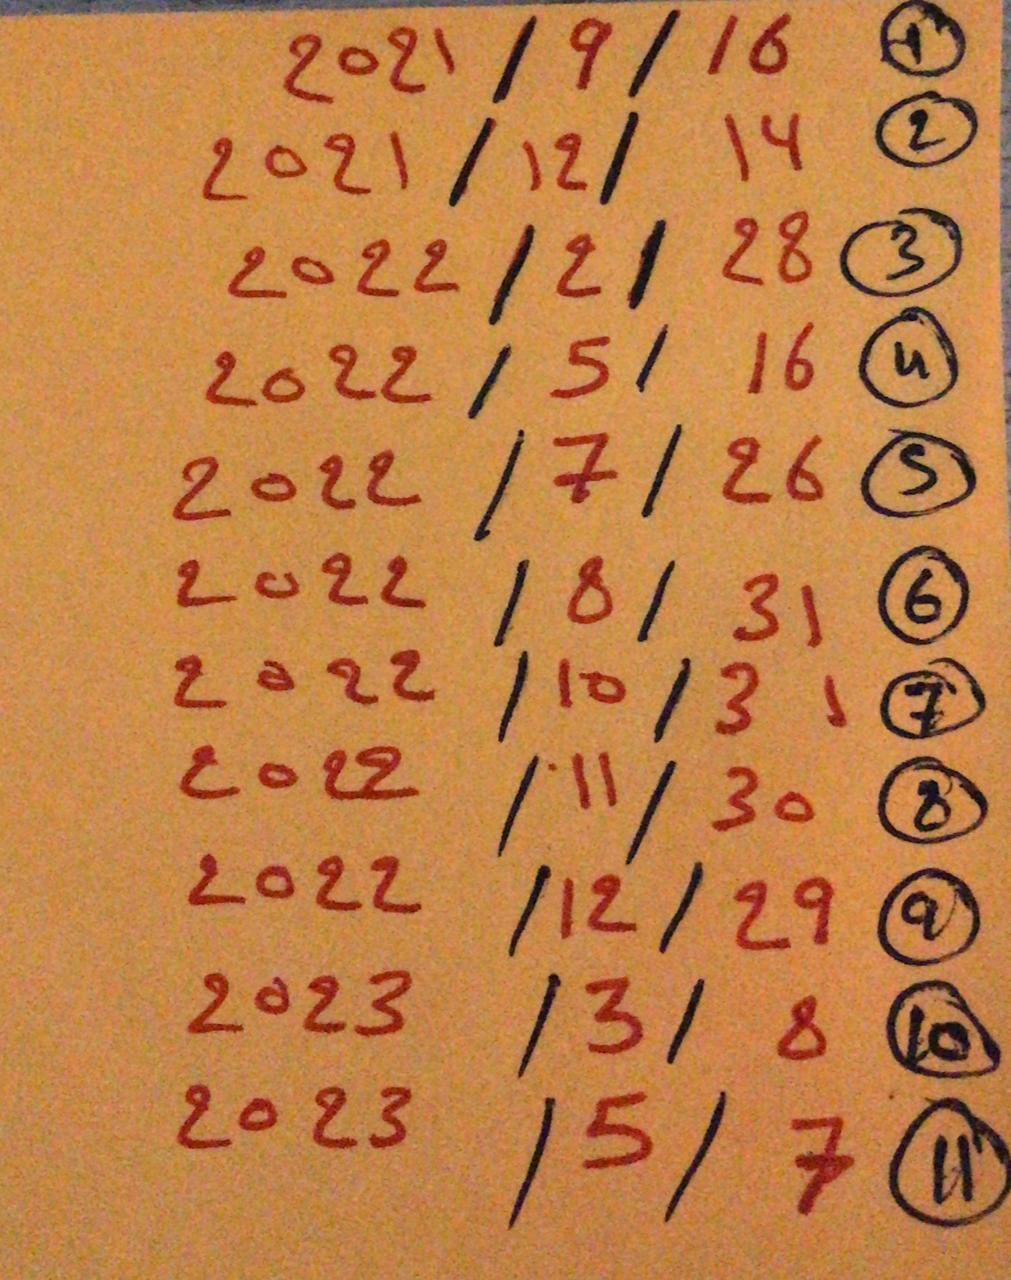 2021 / 9 / 16 1
2021 / 12 / 14 2
2022 / 2 / 28 3
2022 / 5 / 16 4
2022 / 7 / 26 5
2022 / 8 / 31 6
2022 / 10 / 31 7
2022 / 11 / 30 8
2022 / 12 / 29 9
2023 / 3 / 8 10
2023 / 5 / 7 11